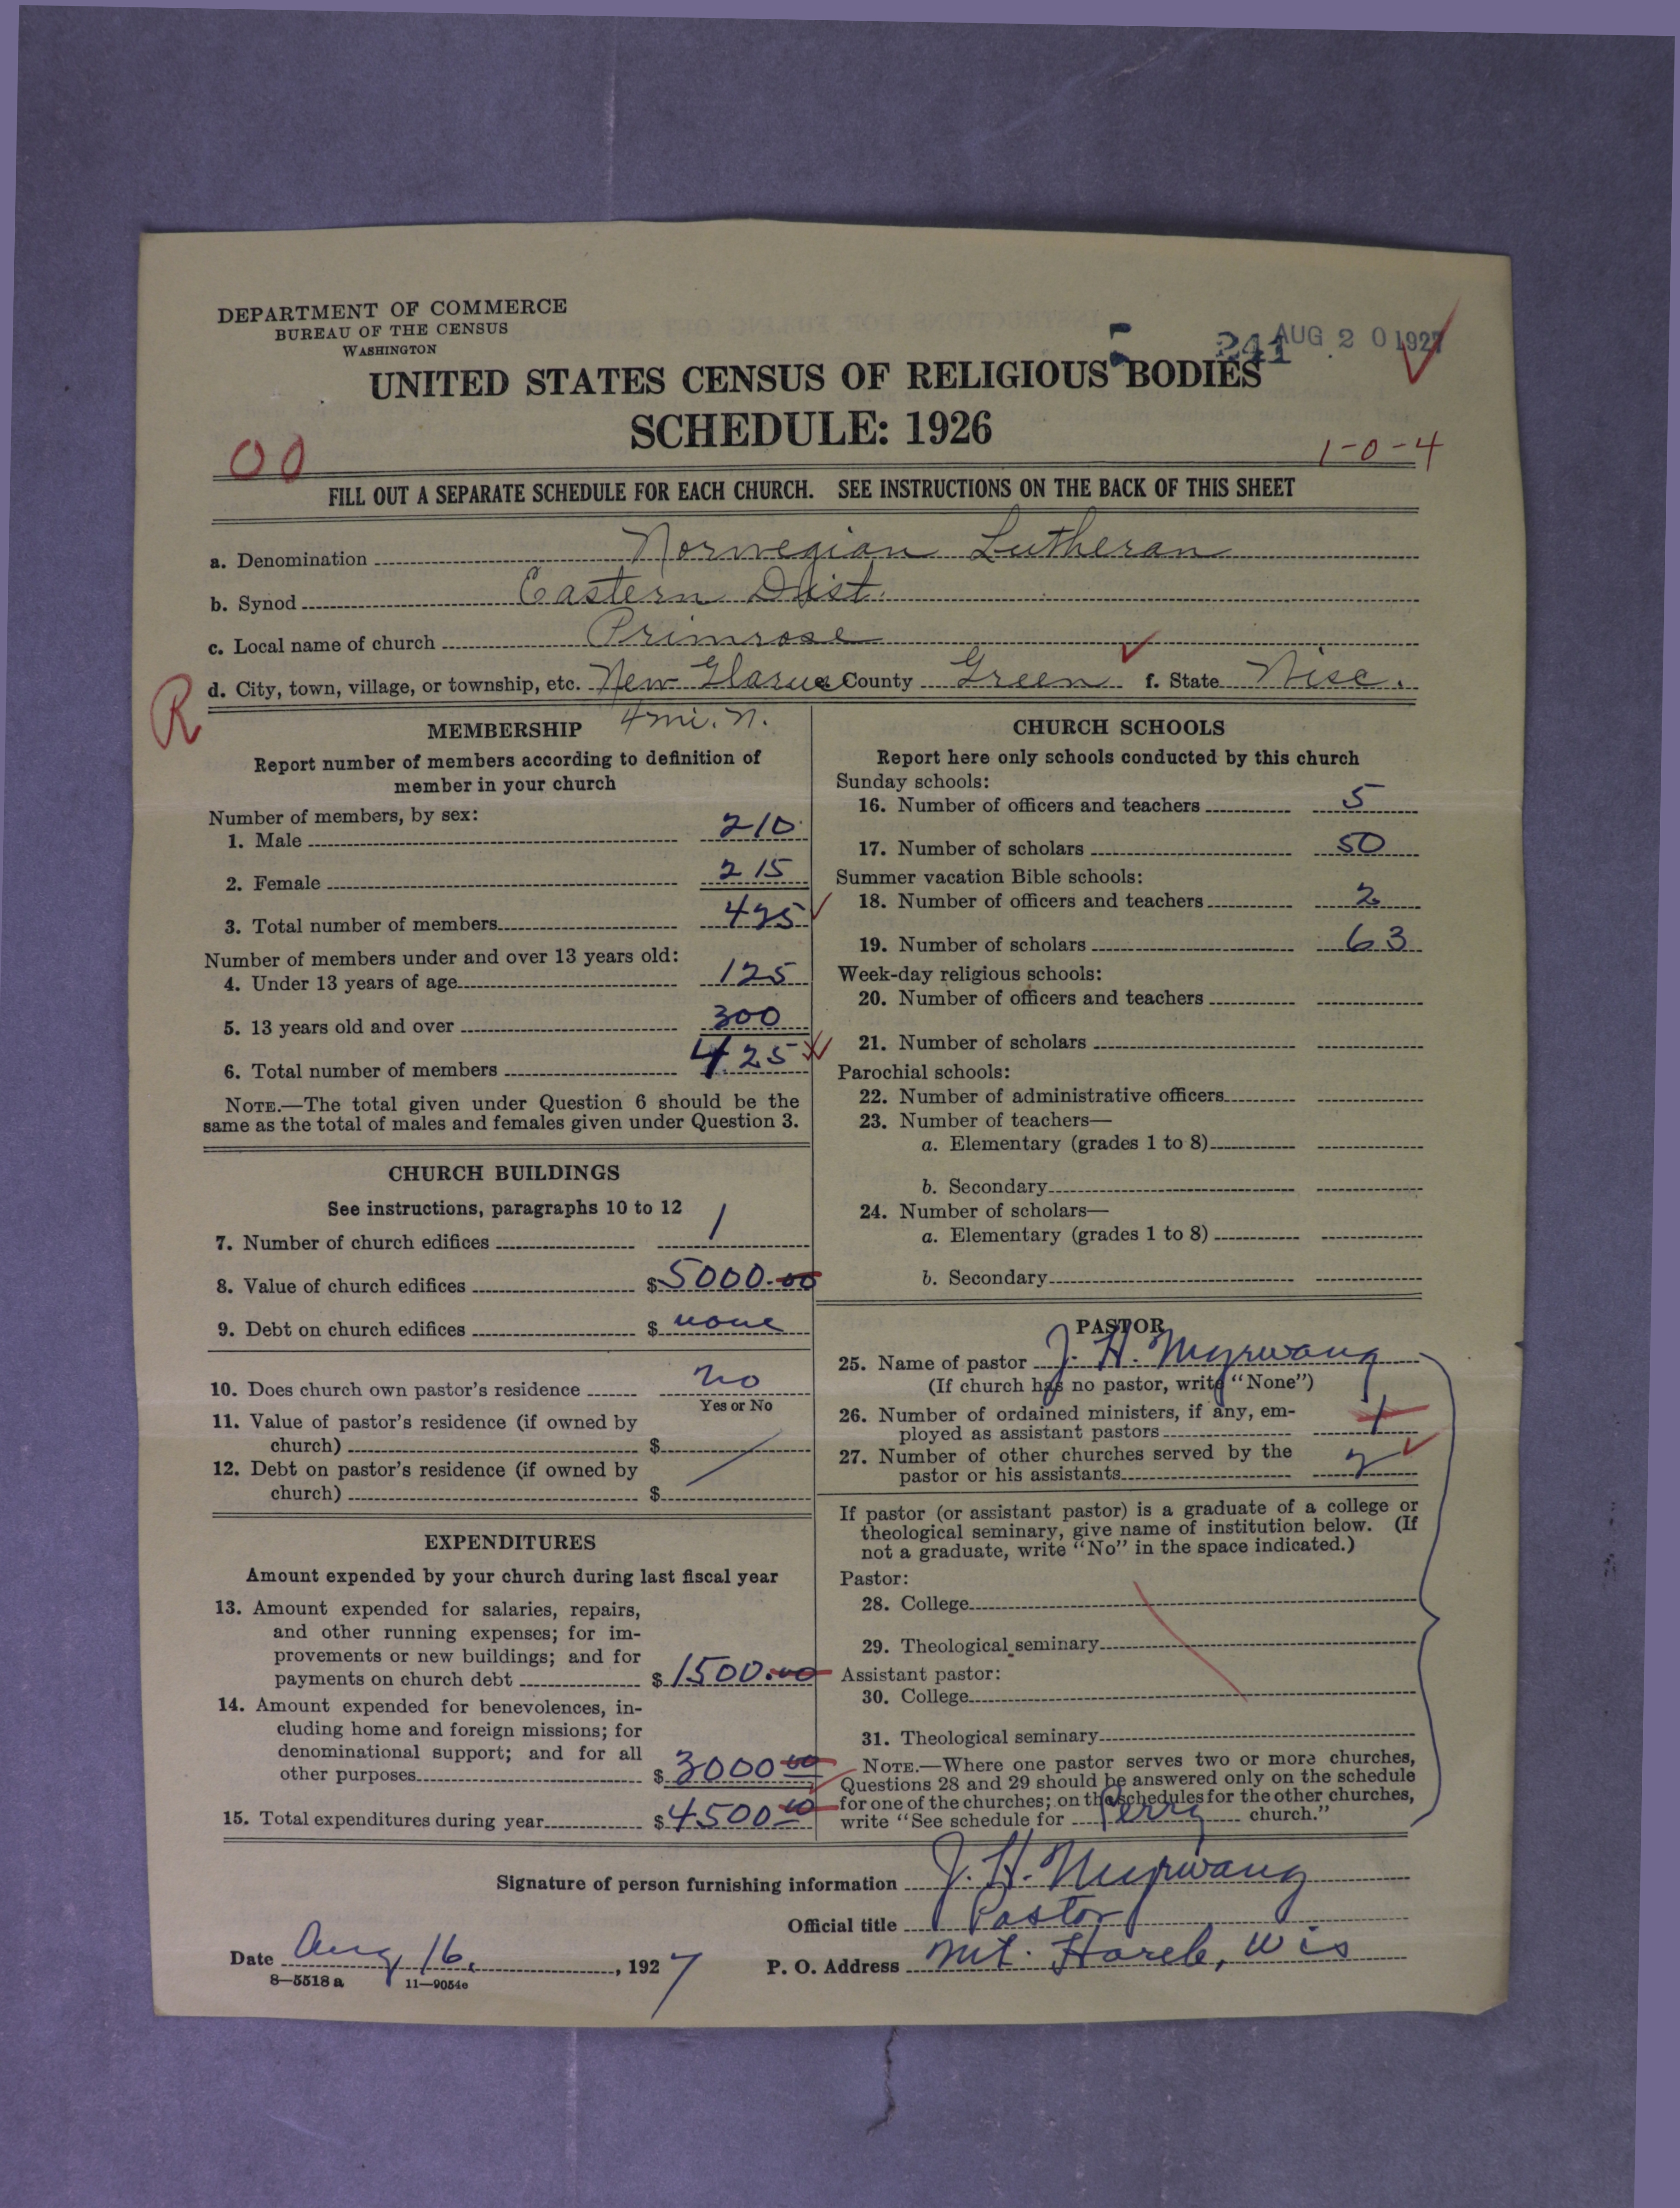 DEPARTMENT OF COMMERCE
BUREAU OF THE CENSUS
WASHINGTON
241 AUG 20 1927
UNITED STATES CENSUS OF RELIGIOUS BODIES
SCHEDULE: 1926
00
1-0-4
FILL OUT A SEPARATE SCHEDULE FOR EACH CHURCH. SEE INSTRUCTIONS ON THE BACK OF THIS SHEET
a. Denomination Norwegian Lutheran
b. Synod Eastern Dist.
c. Local name of church Primrose
d. City, town, village, or township, etc. New Glarus County Green f. State Wisc.
R
4 mi. N.
MEMBERSHIP
Report number of members according to definition of
member in your church
Number of members, by sex:
1. Male 210
2. Female 215
3. Total number of members 425
Number of members under and over 13 years old:
4. Under 13 years of age 125
5. 13 years old and over 300
6. Total number of members 425
NOTE.—The total given under Question 6 should be the
same as the total of males and females given under Question 3.
CHURCH BUILDINGS
See instructions, paragraphs 10 to 12
7. Number of church edifices 1
8. Value of church edifices $5000.00
9. Debt on church edifices $ none
10. Does church own pastor's residence No
Yes or No
11. Value of pastor's residence (if owned by
church) $
12. Debt on pastor's residence (if owned by
church) $
EXPENDITURES
Amount expended by your church during last fiscal year
13. Amount expended for salaries, repairs,
and other running expenses; for im-
provements or new buildings; and for
payments on church debt $1500.00
14. Amount expended for benevolences, in-
cluding home and foreign missions; for
denominational support; and for all
other purposes $3000 00
15. Total expenditures during year $4500 00
CHURCH SCHOOLS
Report here only schools conducted by this church
Sunday schools:
16. Number of officers and teachers 5
17. Number of scholars 50
Summer vacation Bible schools:
18. Number of officers and teachers 2
19. Number of scholars 63
Week-day religious schools:
20. Number of officers and teachers
21. Number of scholars
Parochial schools:
22. Number of administrative officers
23. Number of teachers—
a. Elementary (grades 1 to 8)
b. Secondary
24. Number of scholars—
a. Elementary (grades 1 to 8)
b. Secondary
PASTOR
25. Name of pastor J. H. Myrwang
(If church has no pastor, write "None")
26. Number of ordained ministers, if any, em-
ployed as assistant pastors 1
27. Number of other churches served by the
pastor or his assistants 2
If pastor (or assistant pastor) is a graduate of a college or
theological seminary, give name of institution below. (If
not a graduate, write "No" in the space indicated.)
Pastor:
28. College
29. Theological seminary
Assistant pastor:
30. College
31. Theological seminary
NOTE.—Where one pastor serves two or more churches,
Questions 28 and 29 should be answered only on the schedule
for one of the churches; on the schedules for the other churches,
write "See schedule for Perry church."
Signature of person furnishing information J. H. Myrwang
Official title Pastor
Date Aug 16, 1927 P. O. Address Mt. Horeb, Wis
8—5518 a 11—9054e